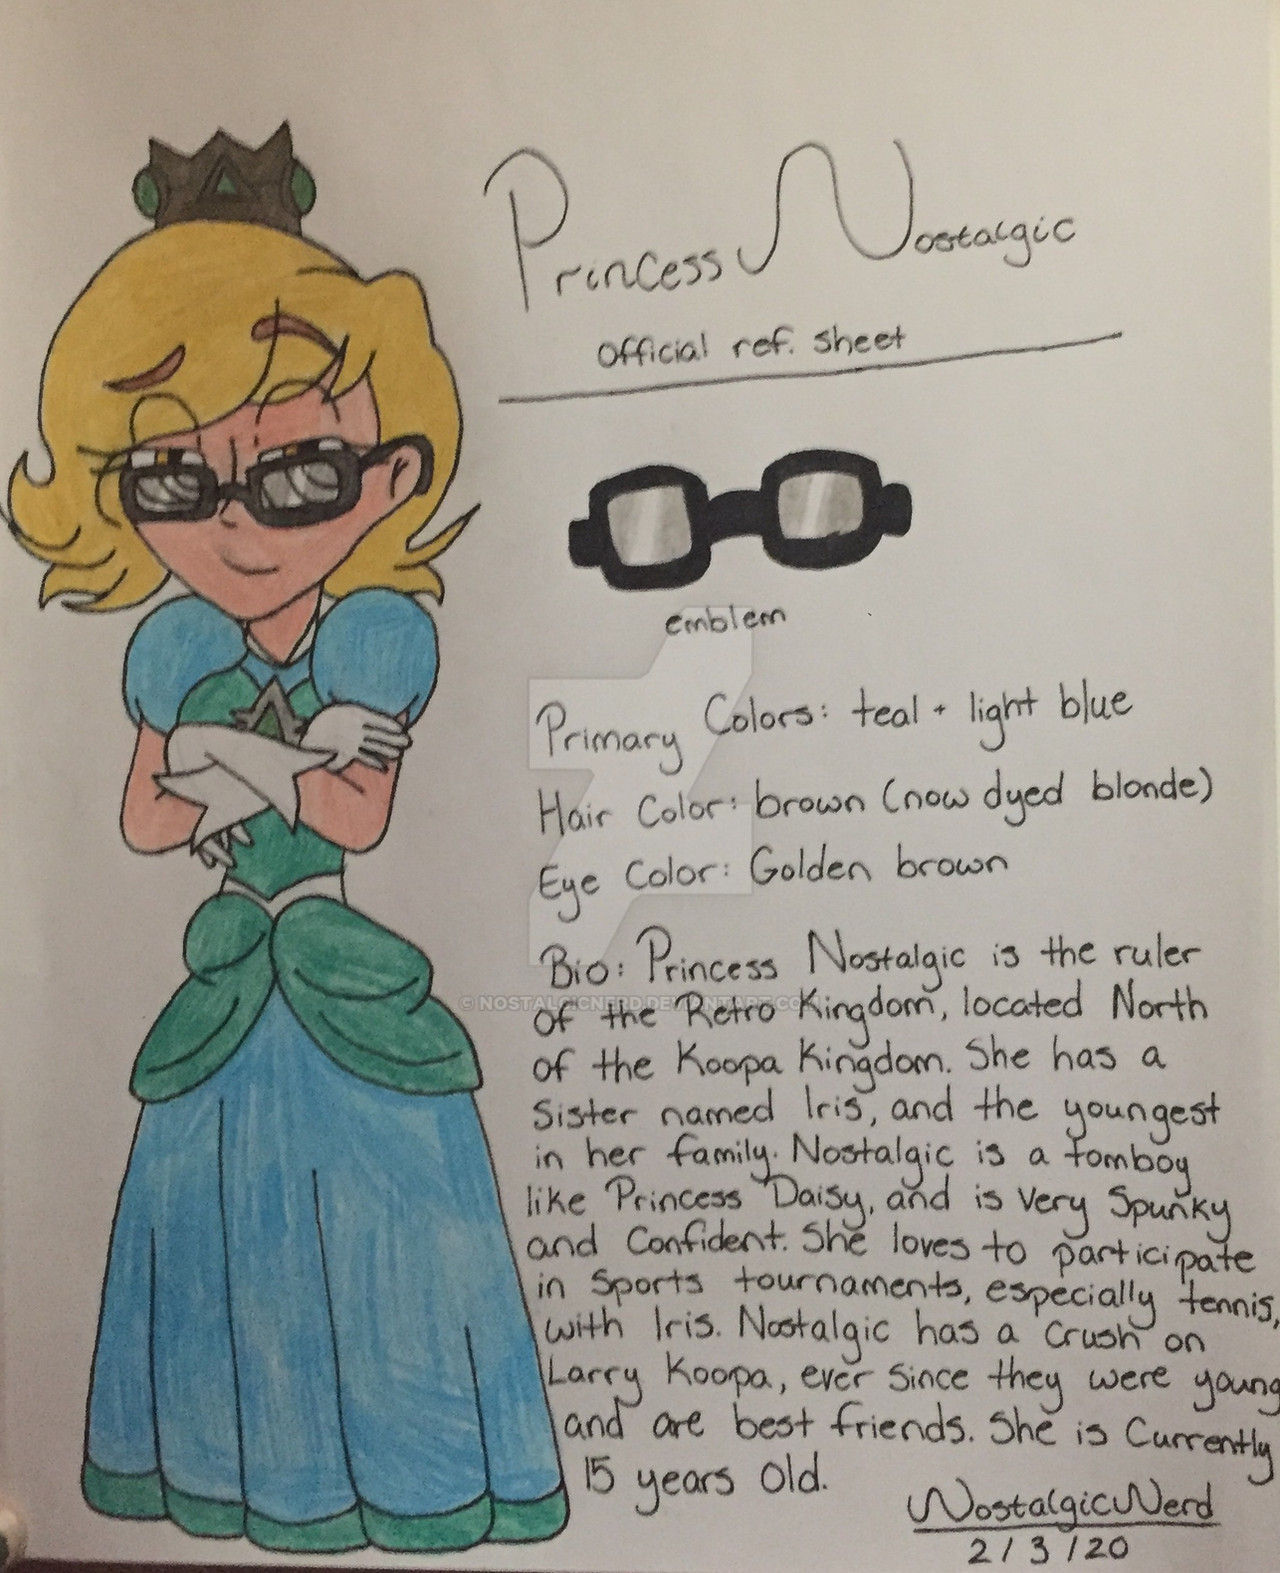 Princess Nostalgic
Official ref. sheet
emblem
Primary Colors: teal + light blue
Hair Color: brown (now dyed blonde)
Eye Color: Golden brown
Bio: Princess Nostalgic is the ruler
© NOSTALGICNERD.DEVIANTART.COM
of the Retro Kingdom, located North
of the Koopa Kingdom. She has a
Sister named Iris, and the youngest
in her family. Nostalgic is a tomboy
like Princess Daisy, and is very Spunky
and Confident. She loves to participate
in Sports tournaments, especially tennis,
with Iris. Nostalgic has a Crush on
Larry Koopa, ever Since they were young
and are best friends. She is Currently
15 years old.
NostalgicNerd
2/3/20